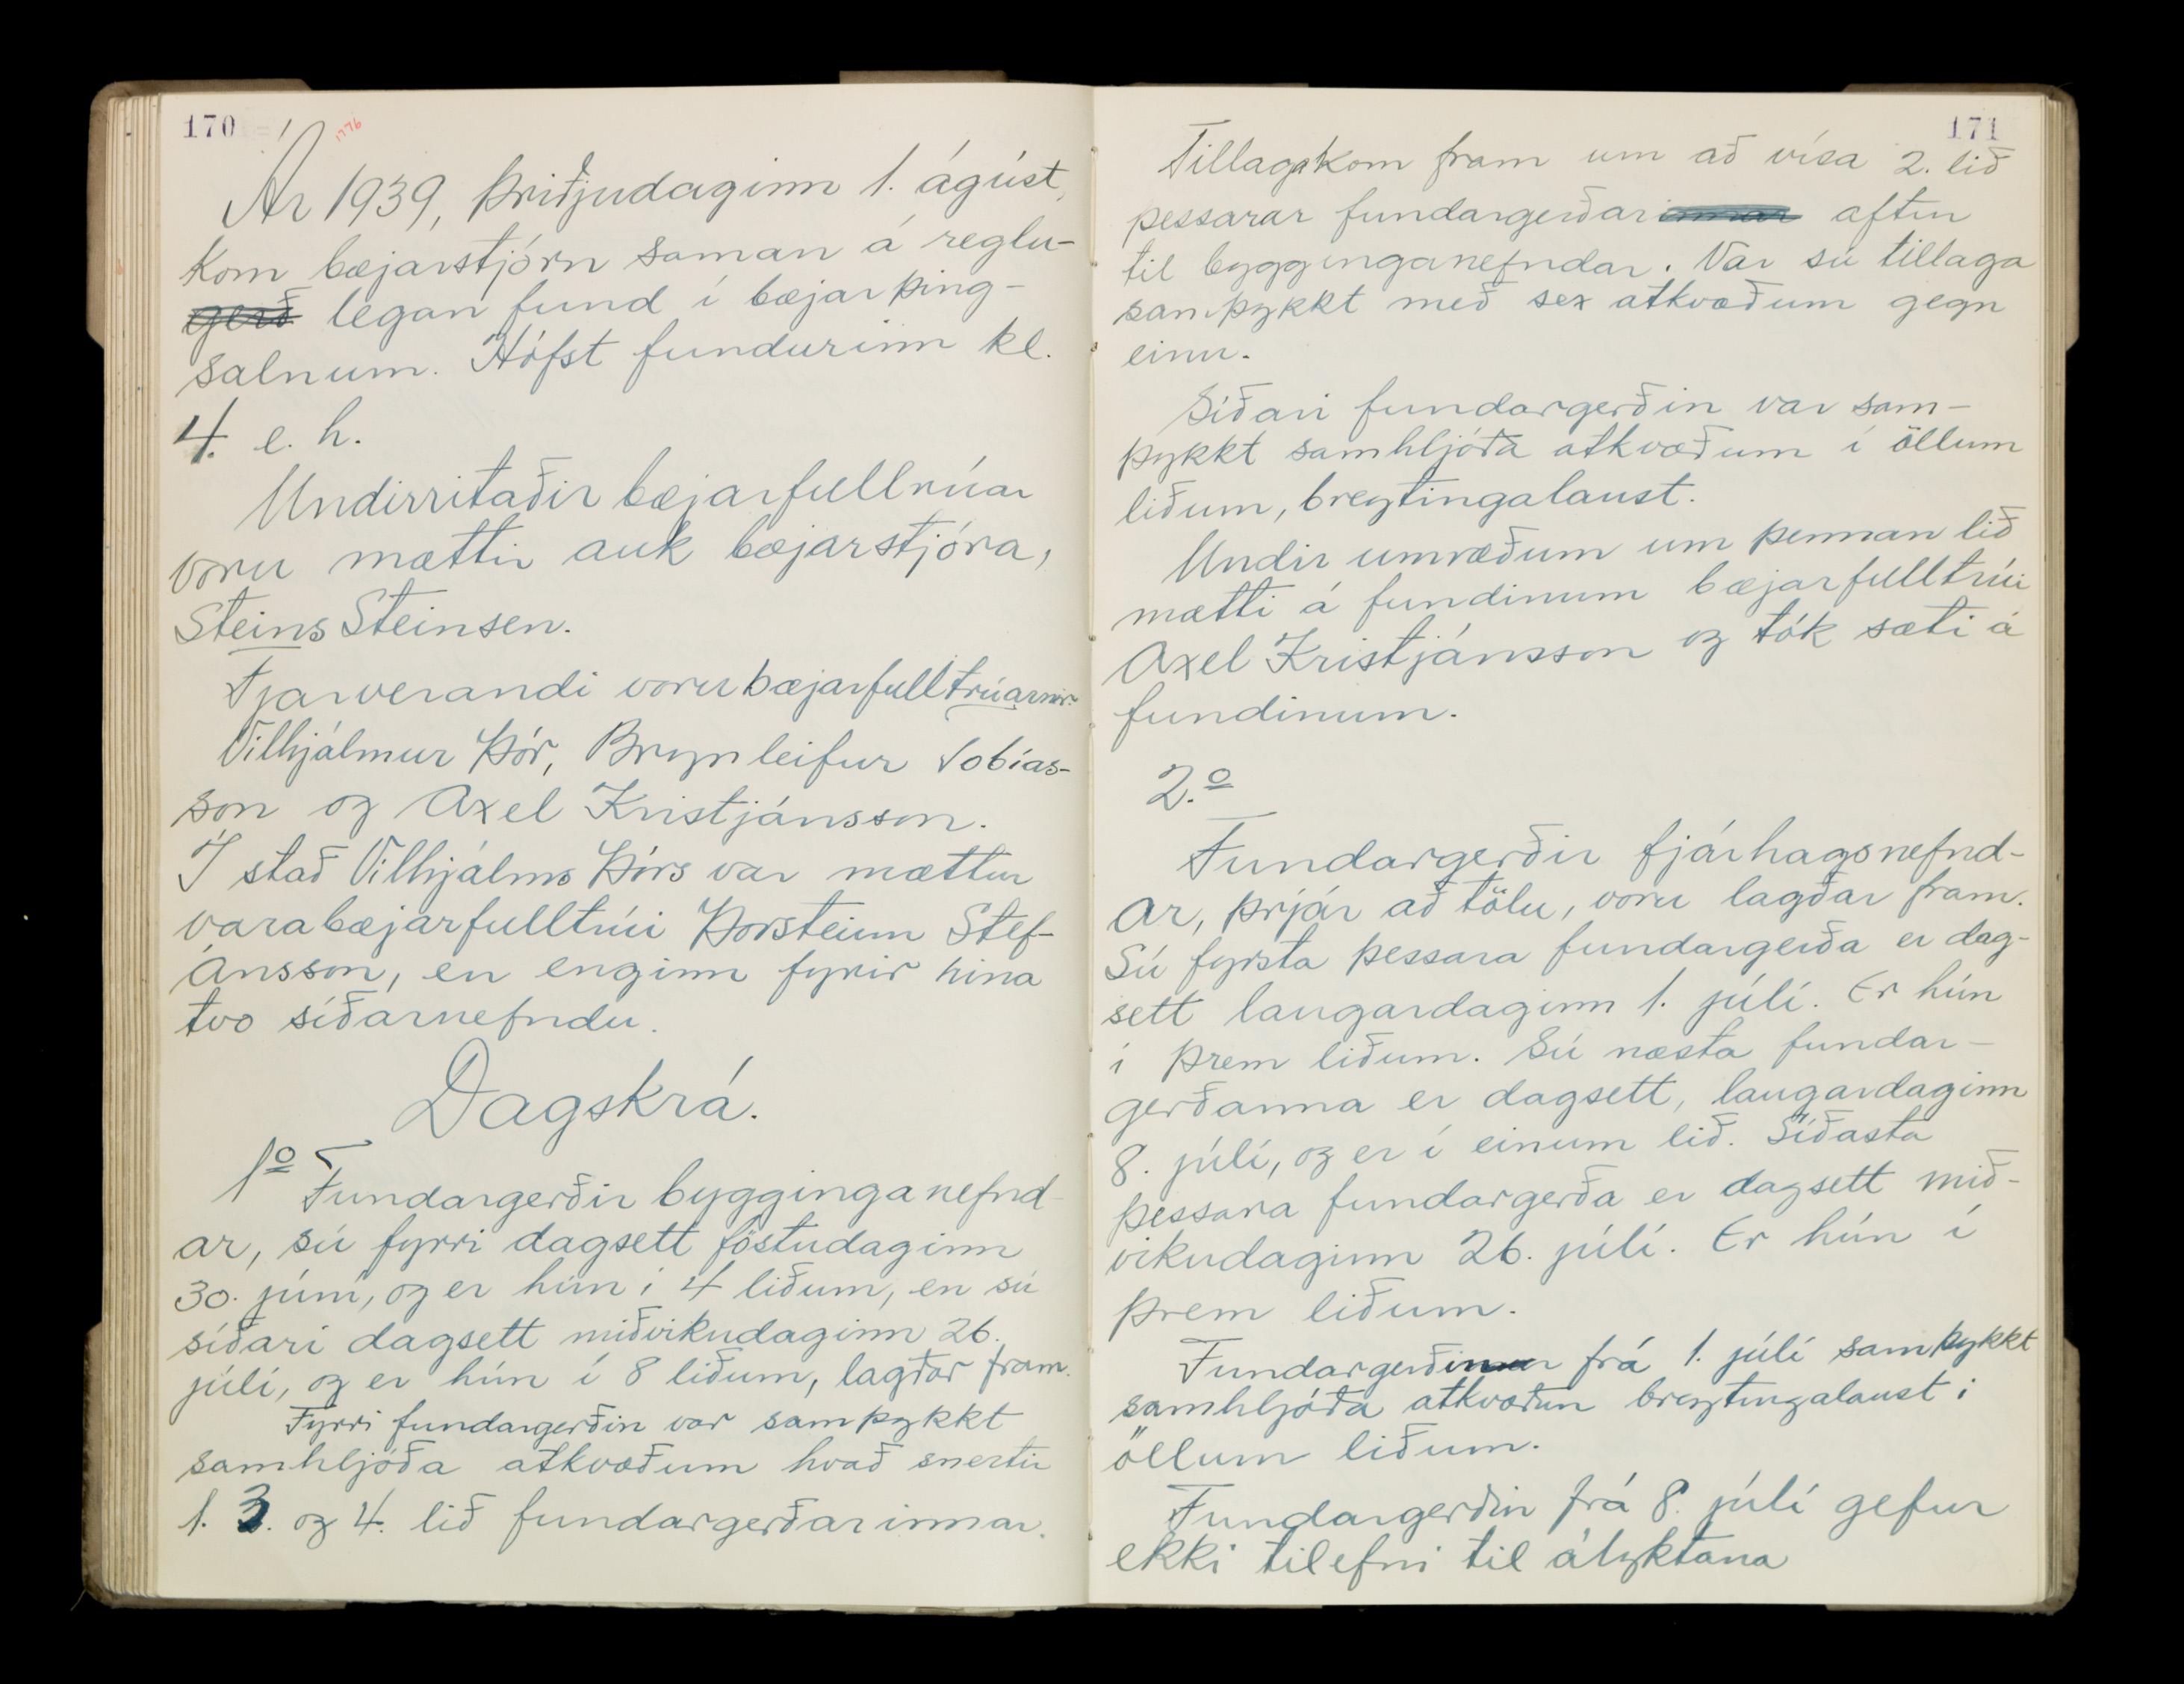 170
1776
Ár 1939, þriðjudaginn 1. ágúst,
kom bæjarstjórn saman á reglu-
gerð legan fund í bæjarþing-
salnum. Hófst fundurinn kl.
4. e. h.
Undirritaðir bæjarfullrúar
voru mættir auk bæjarstjóra,
Steins Steinsen.
Fjarverandi voru bæjarfulltrúarnir
Vilhjálmur Þór, Brynleifur Tobías-
son og Axel Kristjánsson.
Í stað Vilhjálms Þórs var mættur
varabæjarfulltrúi Þorsteinn Stef-
ánsson, en enginn fyrir hina
tvo síðarnefndu.
Dagskrá.
1º Fundargerðir bygginganefnd-
ar, sú fyrri dagsett föstudaginn
30. júní, og er hún í 4 liðum, en sú
síðari dagsett miðvikudaginn 26.
júlí, og er hún í 8 liðum, lagðar fram.
Fyrri fundargerðin var samþykkt
samhljóða atkvæðum hvað snertir
1. 3. og 4. lið fundargerðarinnar.
171
Tillaga kom fram um að vísa 2. lið
þessarar fundargerðarinnar aftur
til bygginganefndar. Var sú tillaga
samþykkt með sex atkvæðum gegn
einu.
Síðari fundargerðin var sam-
þykkt samhljóða atkvæðum í öllum
liðum, breytingalaust.
Undir umræðum um þennan lið
mætti á fundinum bæjarfulltrúi
Axel Kristjánsson og tók sæti á
fundinum.
2.º
Fundargerðir fjárhagsnefnd-
ar, þrjár að tölu, voru lagðar fram.
Sú fyrsta þessara fundargerða er dag-
sett laugardaginn 1. júlí. Er hún
í þrem liðum. Sú næsta fundar-
gerðanna er dagsett, laugardaginn
8. júlí, og er í einum lið. Síðasta
þessara fundargerða er dagsett mið-
vikudaginn 26. júlí. Er hún í
þrem liðum.
Fundargerðin frá 1. júlí samþykkt
samhljóða atkvæðum breytingalaust í
öllum liðum.
Fundargerðin frá 8. júlí gefur
ekki tilefni til ályktana